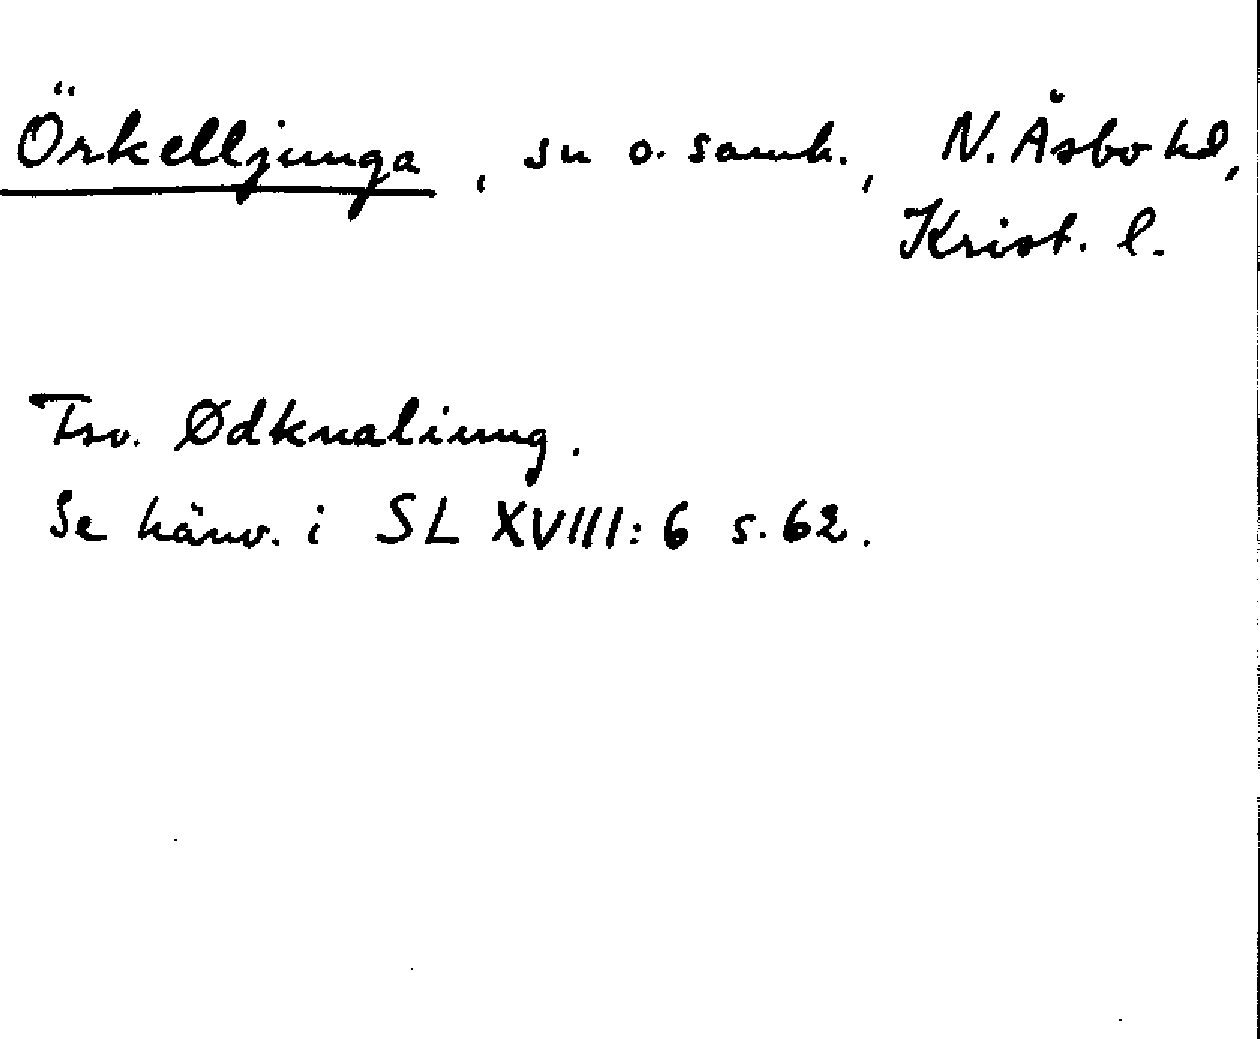 Örkelljunga, sn o. samh., N. Åsbo hd,
Krist. l.
Fsv. Ødknaliung.
Se hänv. i SL XVIII:6 s. 62.